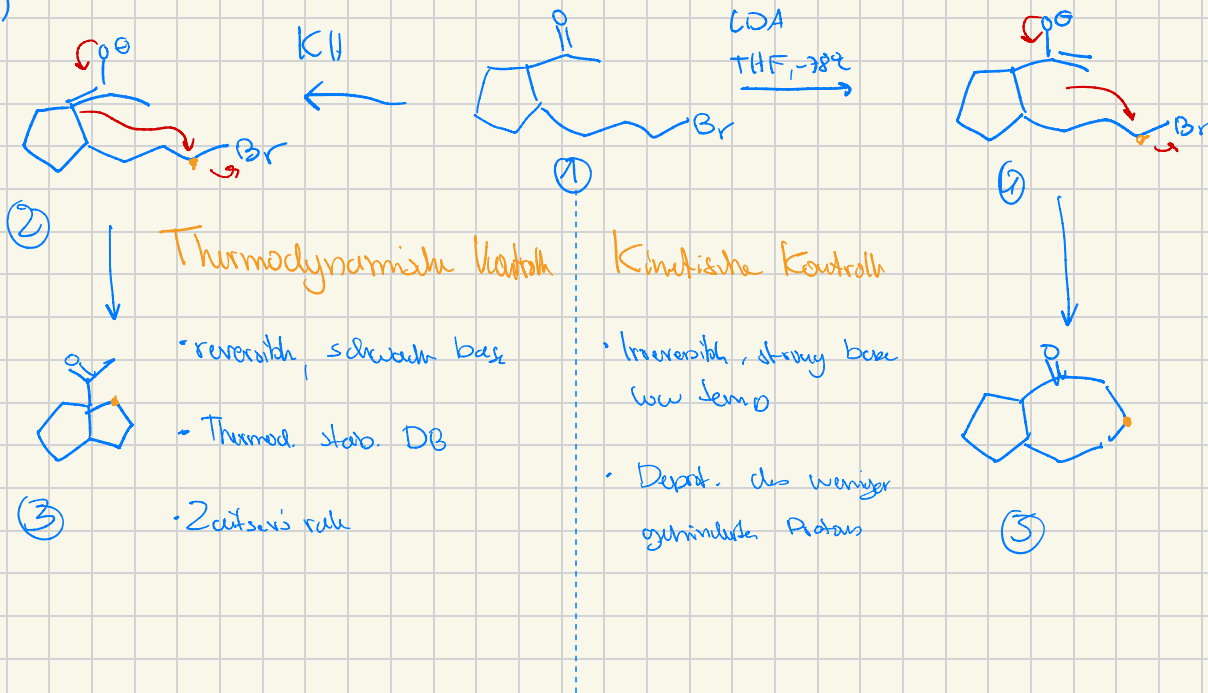 )
KH
LDA
THF, -78°C
O
O⊖
O⊖
Br
Br
Br
①
②
④
Thermodynamische Kontrolle
Kinetische Kontrolle
• reversibh, schwach base
• Thermod. stab. DB
• Zaitsev's rule
• Irreversibh, strong base
low temp
• Deprot. des weniger
gehinderten Protons
O
O
③
⑤